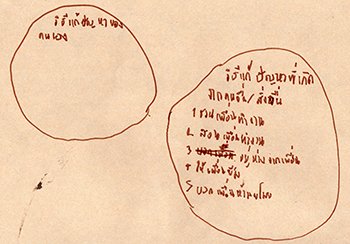 วิธีแก้ปัญหาของ
ตนเอง
วิธีแก้ ปัญหาที่เกิด
จากคนอื่น/สิ่งอื่น
1 ชวนเพื่อนทำงาน
2 สอนเพื่อนทำงาน
3 อยู่ห่างจากเพื่อน
4 ให้เพื่อนยืม
5 บอกเพื่อน